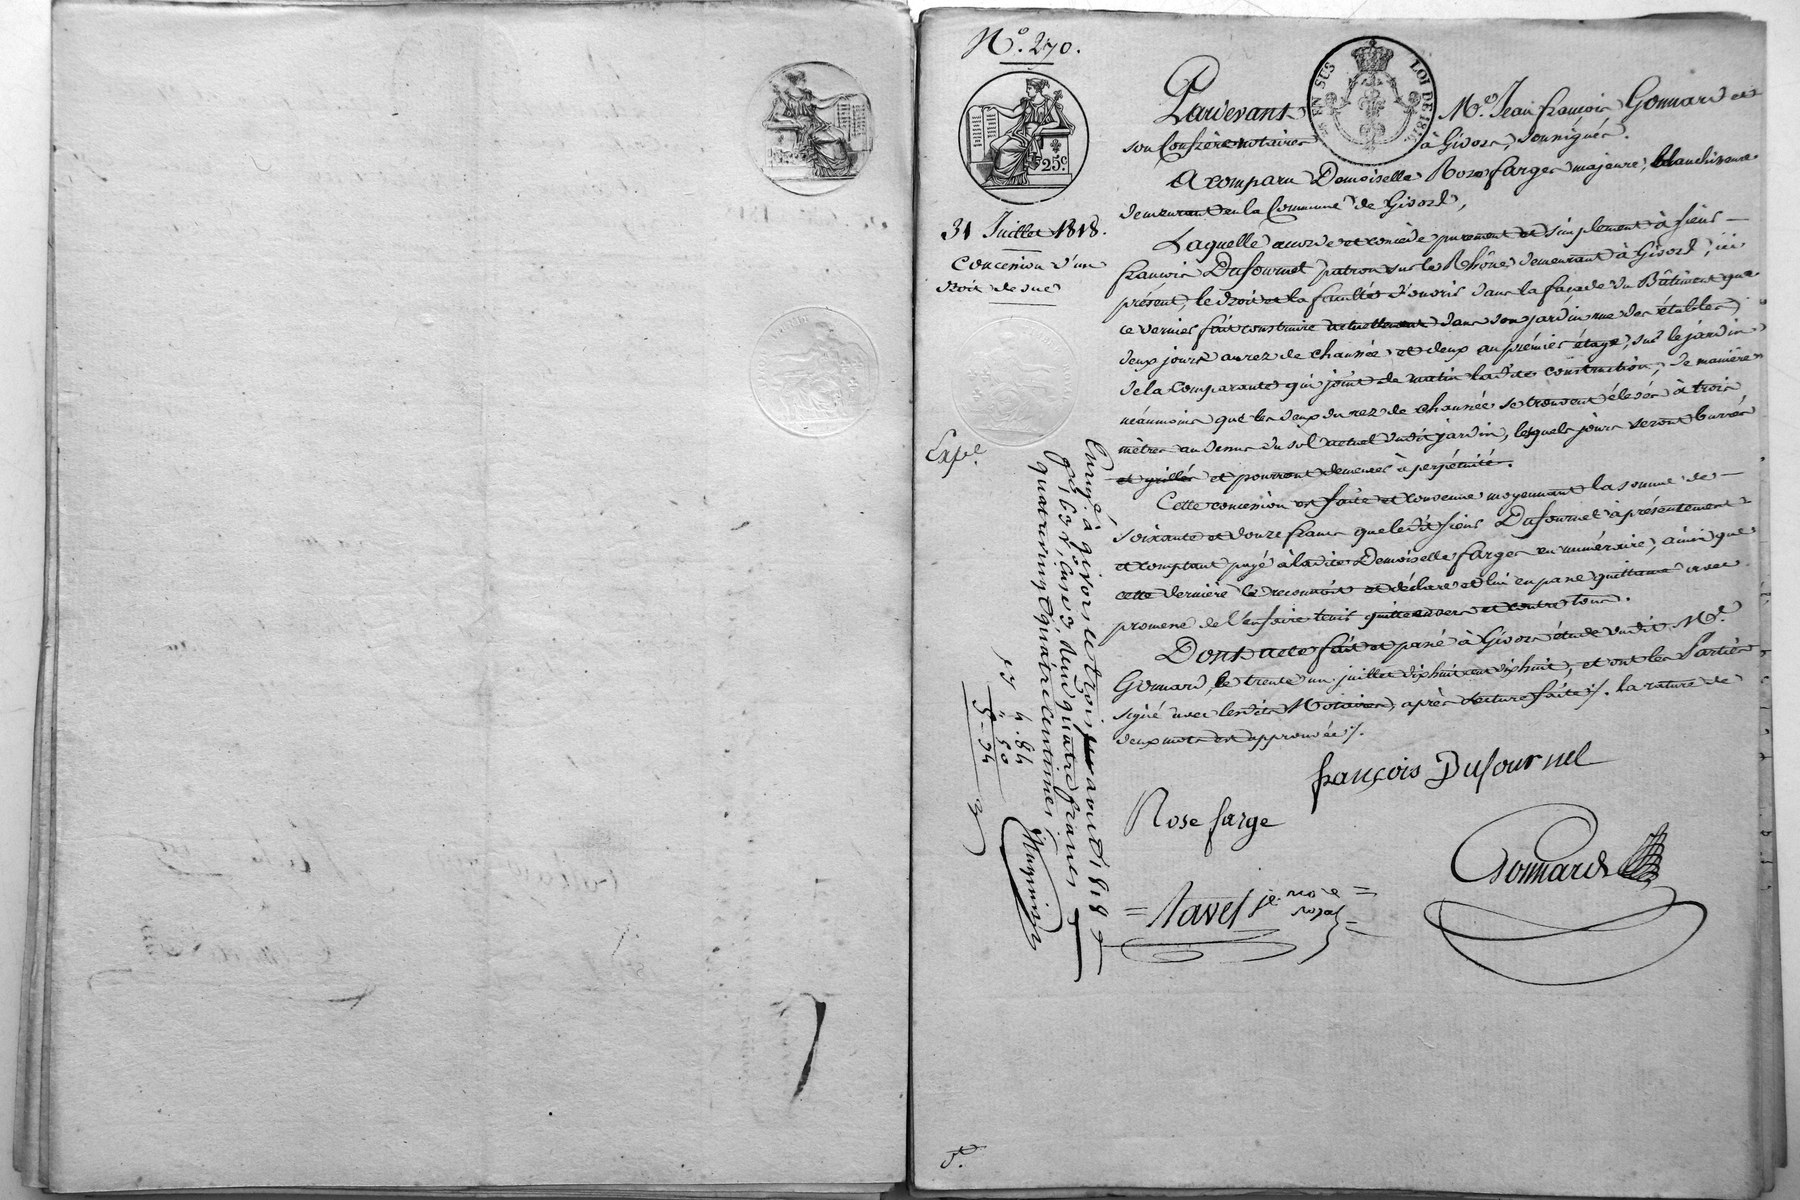 N.º 270.
25c.
31 Juillet 1818.
Concession d'un
droit de vue
Expé.
EN SUS LOI DE 181
Pardevant Mes. Jean françois Gonnard et
son Confrère notaires à Givors, soussignés.
A comparu Demoiselle Rose farges majeure, blanchisseuse
demeurant en la Commune de Givors,
Laquelle accorde et concède purement et simplement à sieur
françois Dufournel patron sur le Rhône, demeurant à Givors, ici
présent, le droit et la faculté d'ouvrir dans la façade du Bâtiment que
ce dernier fait construire actuellement dans son jardin rue des étables,
deux jours au rez de chaussée et deux au prémier étage, sur le jardin
de la comparante qui joint de matin ladite construction, de manière
néaumoins que les deux du rez de chaussée se trouvent élevés à trois
mètres au dessus du sol actuel dudit jardin, lesquels jours seront barrés
et grillés et pourront demeurer à perpétuité.
Cette concession est faite et convenue moyennant la somme de
soixante et douze francs que ledit sieur Dufournel a présentement
et comptant payé à ladite Demoiselle farges en numéraire, ainsi que
cette dernière le reconnoit et déclare et lui en passe quittance avec
promesse de l'en faire tenir quitte envers et contre tous.
Dont acte fait et passé à Givors étude dudit Me.
Gonnard, le trente un juillet dixhuit cent dixhuit, et ont les Parties
signé avec lesdits Notaires, après lecture faite ./. la rature de
deux mots est approuvée ./.
françois Dufournel
Rose farge
Gonnard
= Navel je. nore =
royal =
Enregé. à givors le trois aout 1818
fo. 163 vo., case 3, reçu quatre francs
quatre vingt quatre centimes
4. 84
" 50
5. 34